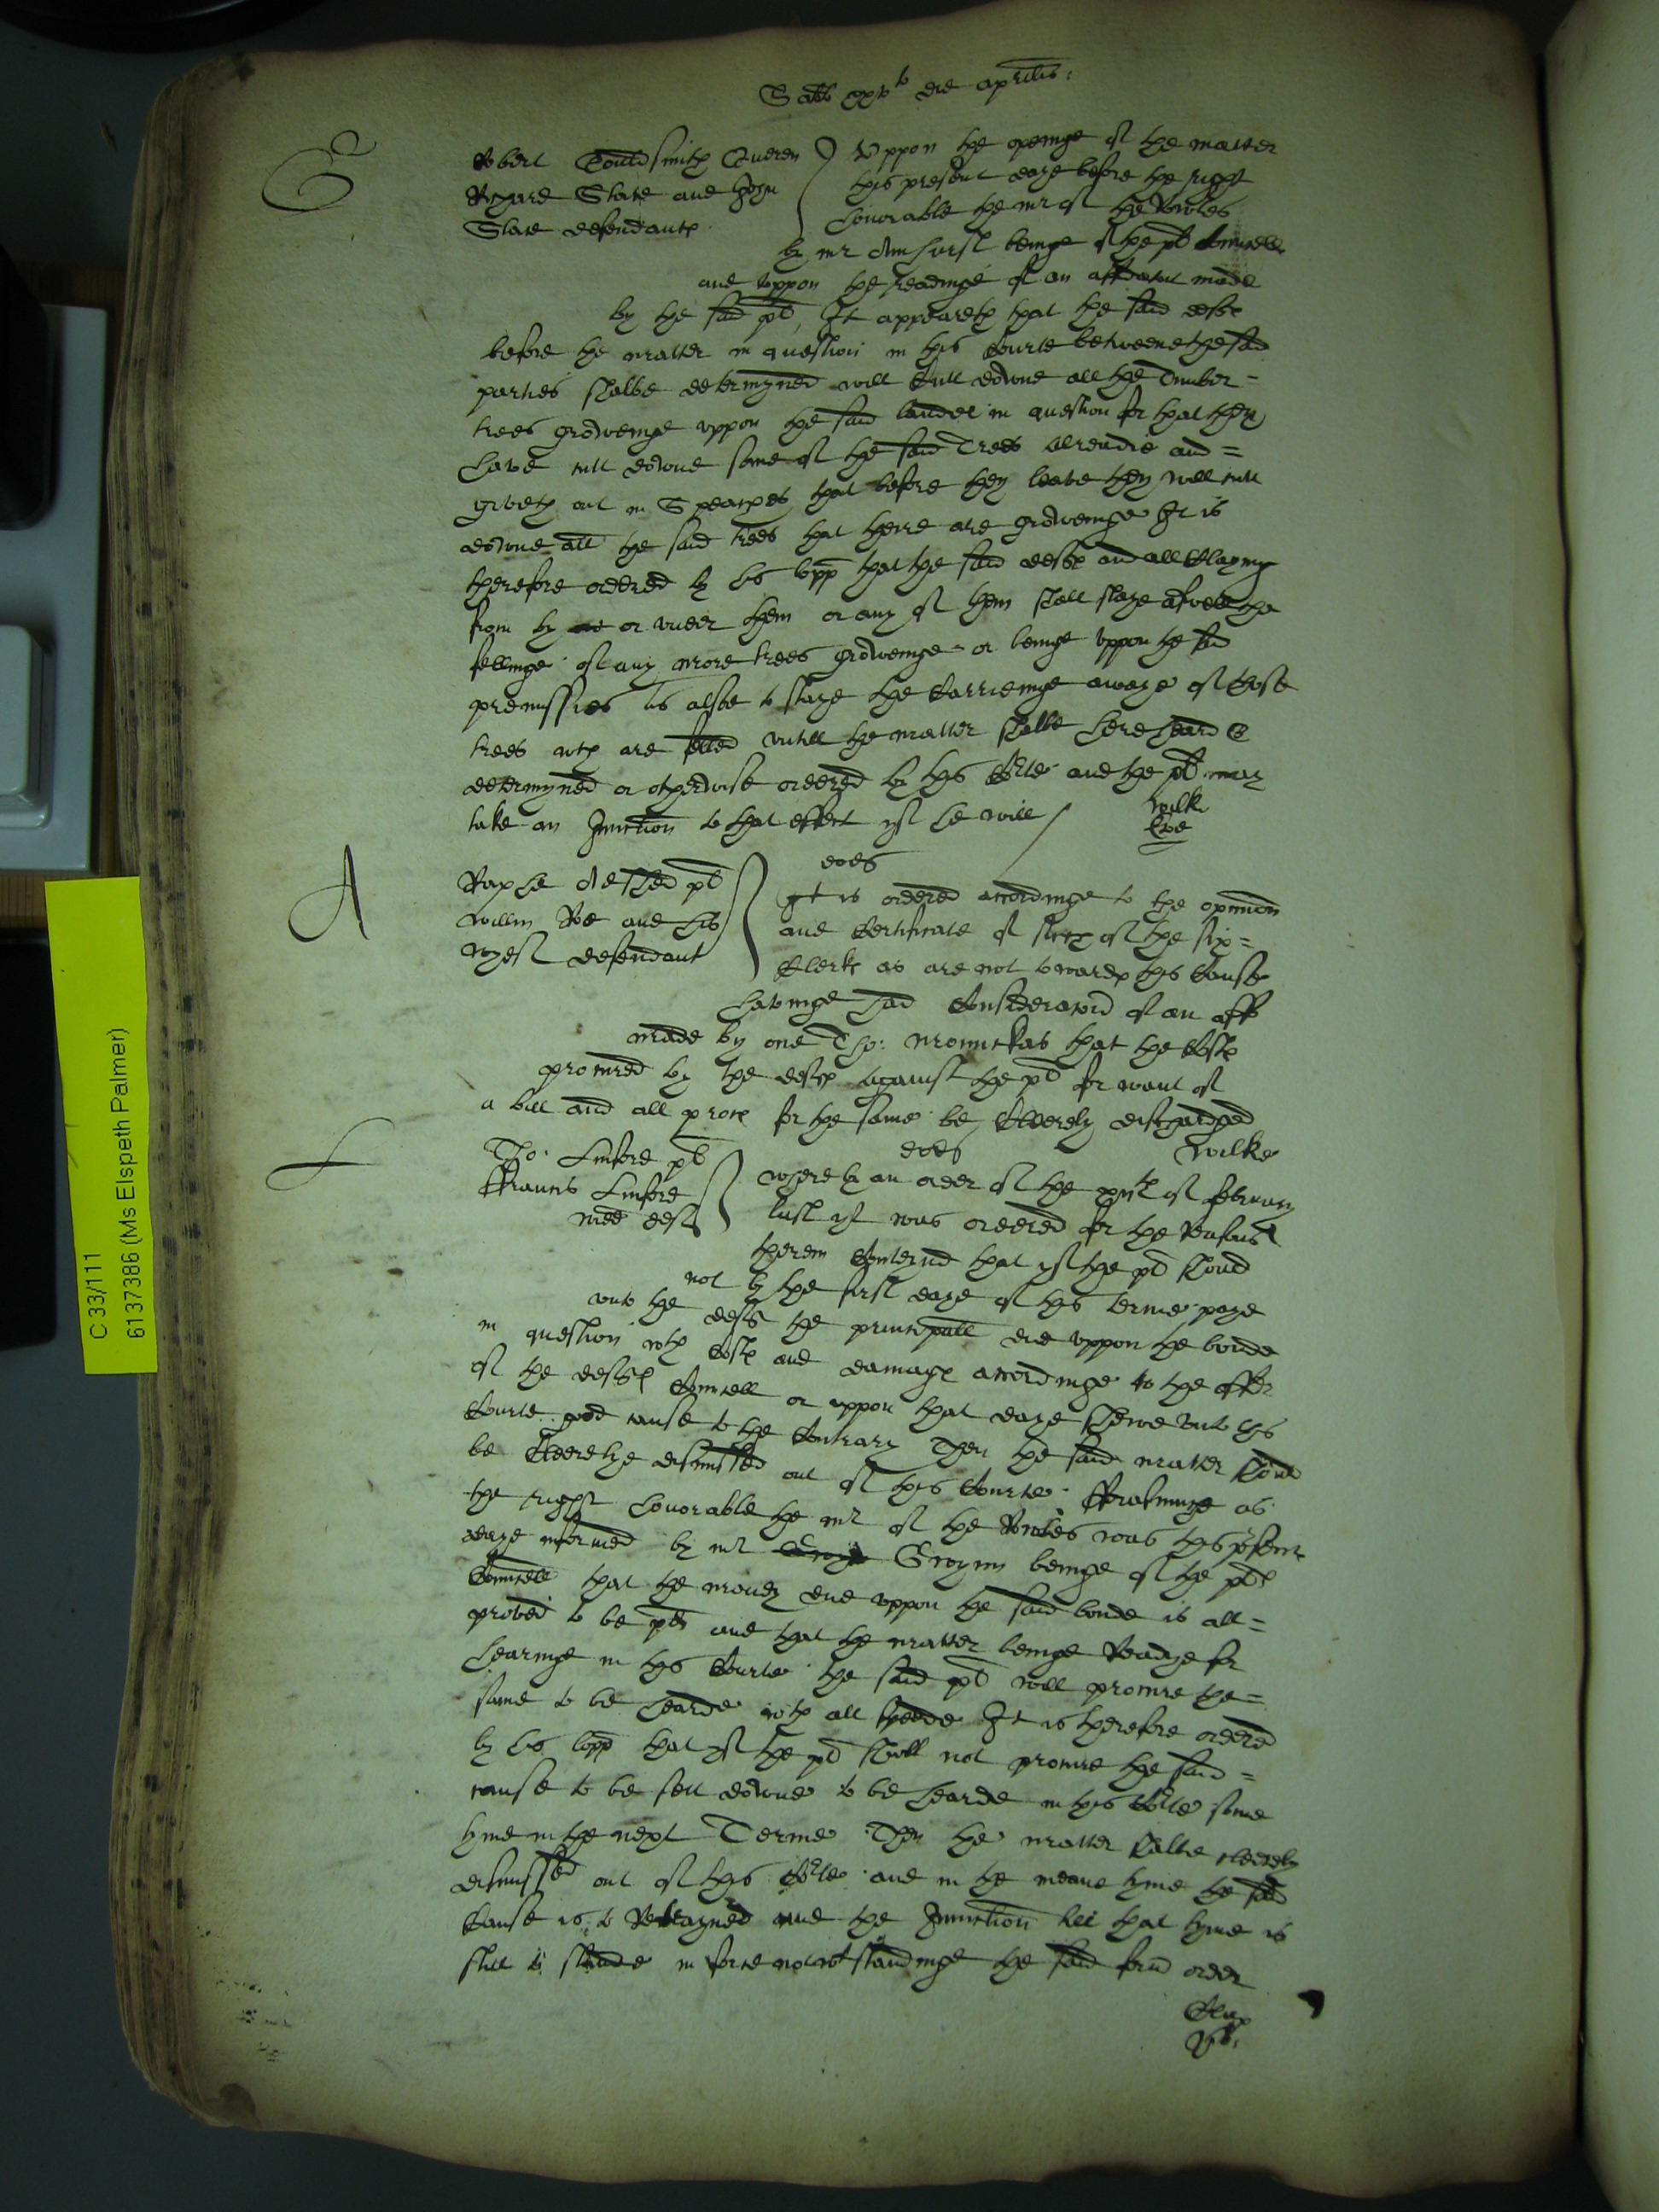 Sabb xxvto die aprilis:
G
Robert Gouldsmith Queren
Richard Slacke and John
Slacke defendantes
Uppon the openinge of the matter
this present daye before the right
honorable the mr of the Rowles
by mr Amhurst beinge of the pl Councell
and uppon the readinge of an affidavit made
by the said pl, It appeareth that the said deftes
before the matter in question in this Courte betweene the said
parties shalbe determyned will Cutt downe all the Tymber =
trees growenge uppon the said landes in question for that they
have cutt downe some of the said Trees alreadie and =
giveth out in Speaches that before they leave they will cutt
downe all the said trees that there are growenge It is
therefore ordered by his lopp that the said deftes and all Claymyng
from by or under them or any of them shall staye aswell the
fellinge of any more trees growenge or beinge uppon the said
premisses as alsoe to staye the Carrienge awaye of those
trees wch are felled untill the matter shalbe here heard &
determyned or otherwise ordered by this Courte and the pl may
take an Iniunction to that effect yf he will /
Wilk
A
Raphe Asshed pl
Willm Roe and his
wyef defendant
eod
It is ordered accordinge to the opinion
and Certificate of such of the six =
Clerkes as are not towardes this Cause
havinge had Consideracion of an aff
made by one Tho: that the Costes
procured by the deftes against the pl for want of
a bill and all proces for the same be Cleerely discharged
Wilke
L
Tho: Linford pl
Ffrauncis Linford
defts
eod
Where by an order of the of february
last yt was ordered for the Reasons
therein Conteyned that yf the pl should
not by the first daye of this terme paye
unto the defts the principall due uppon the bonde
in question wth Costes and damages accordinge to the offer
of the deftes Councell or uppon that daye shewe unto this
Courte good cause to the Contrary Then the said matter should
be Cleerelye dismissed out of this Courte. Fforasmuche as
the right honorable the mr of the Rowles was this present
daye informed by mr Gwynn beinge of the pls
Councell that the money due uppon the said bonde is all =
proved to be pd and that the matter beinge Readye for
hearinge in this Courte the said pl will procure the =
same to be hearde with all speede It is therefore ordered
by his lopp that yf the pl shall not procure the said =
cause to be sett downe to be hearde in this Courte some
tyme in the next Terme Then the matter shalbe cleerely
dismissed out of this Courte and in the meane tyme the said
Cause is to Retayned and the Iniunction till that tyme is
still to stande in force notwthstandinge the said former order
C 33/111
6137386 (Ms Elspeth Palmer)